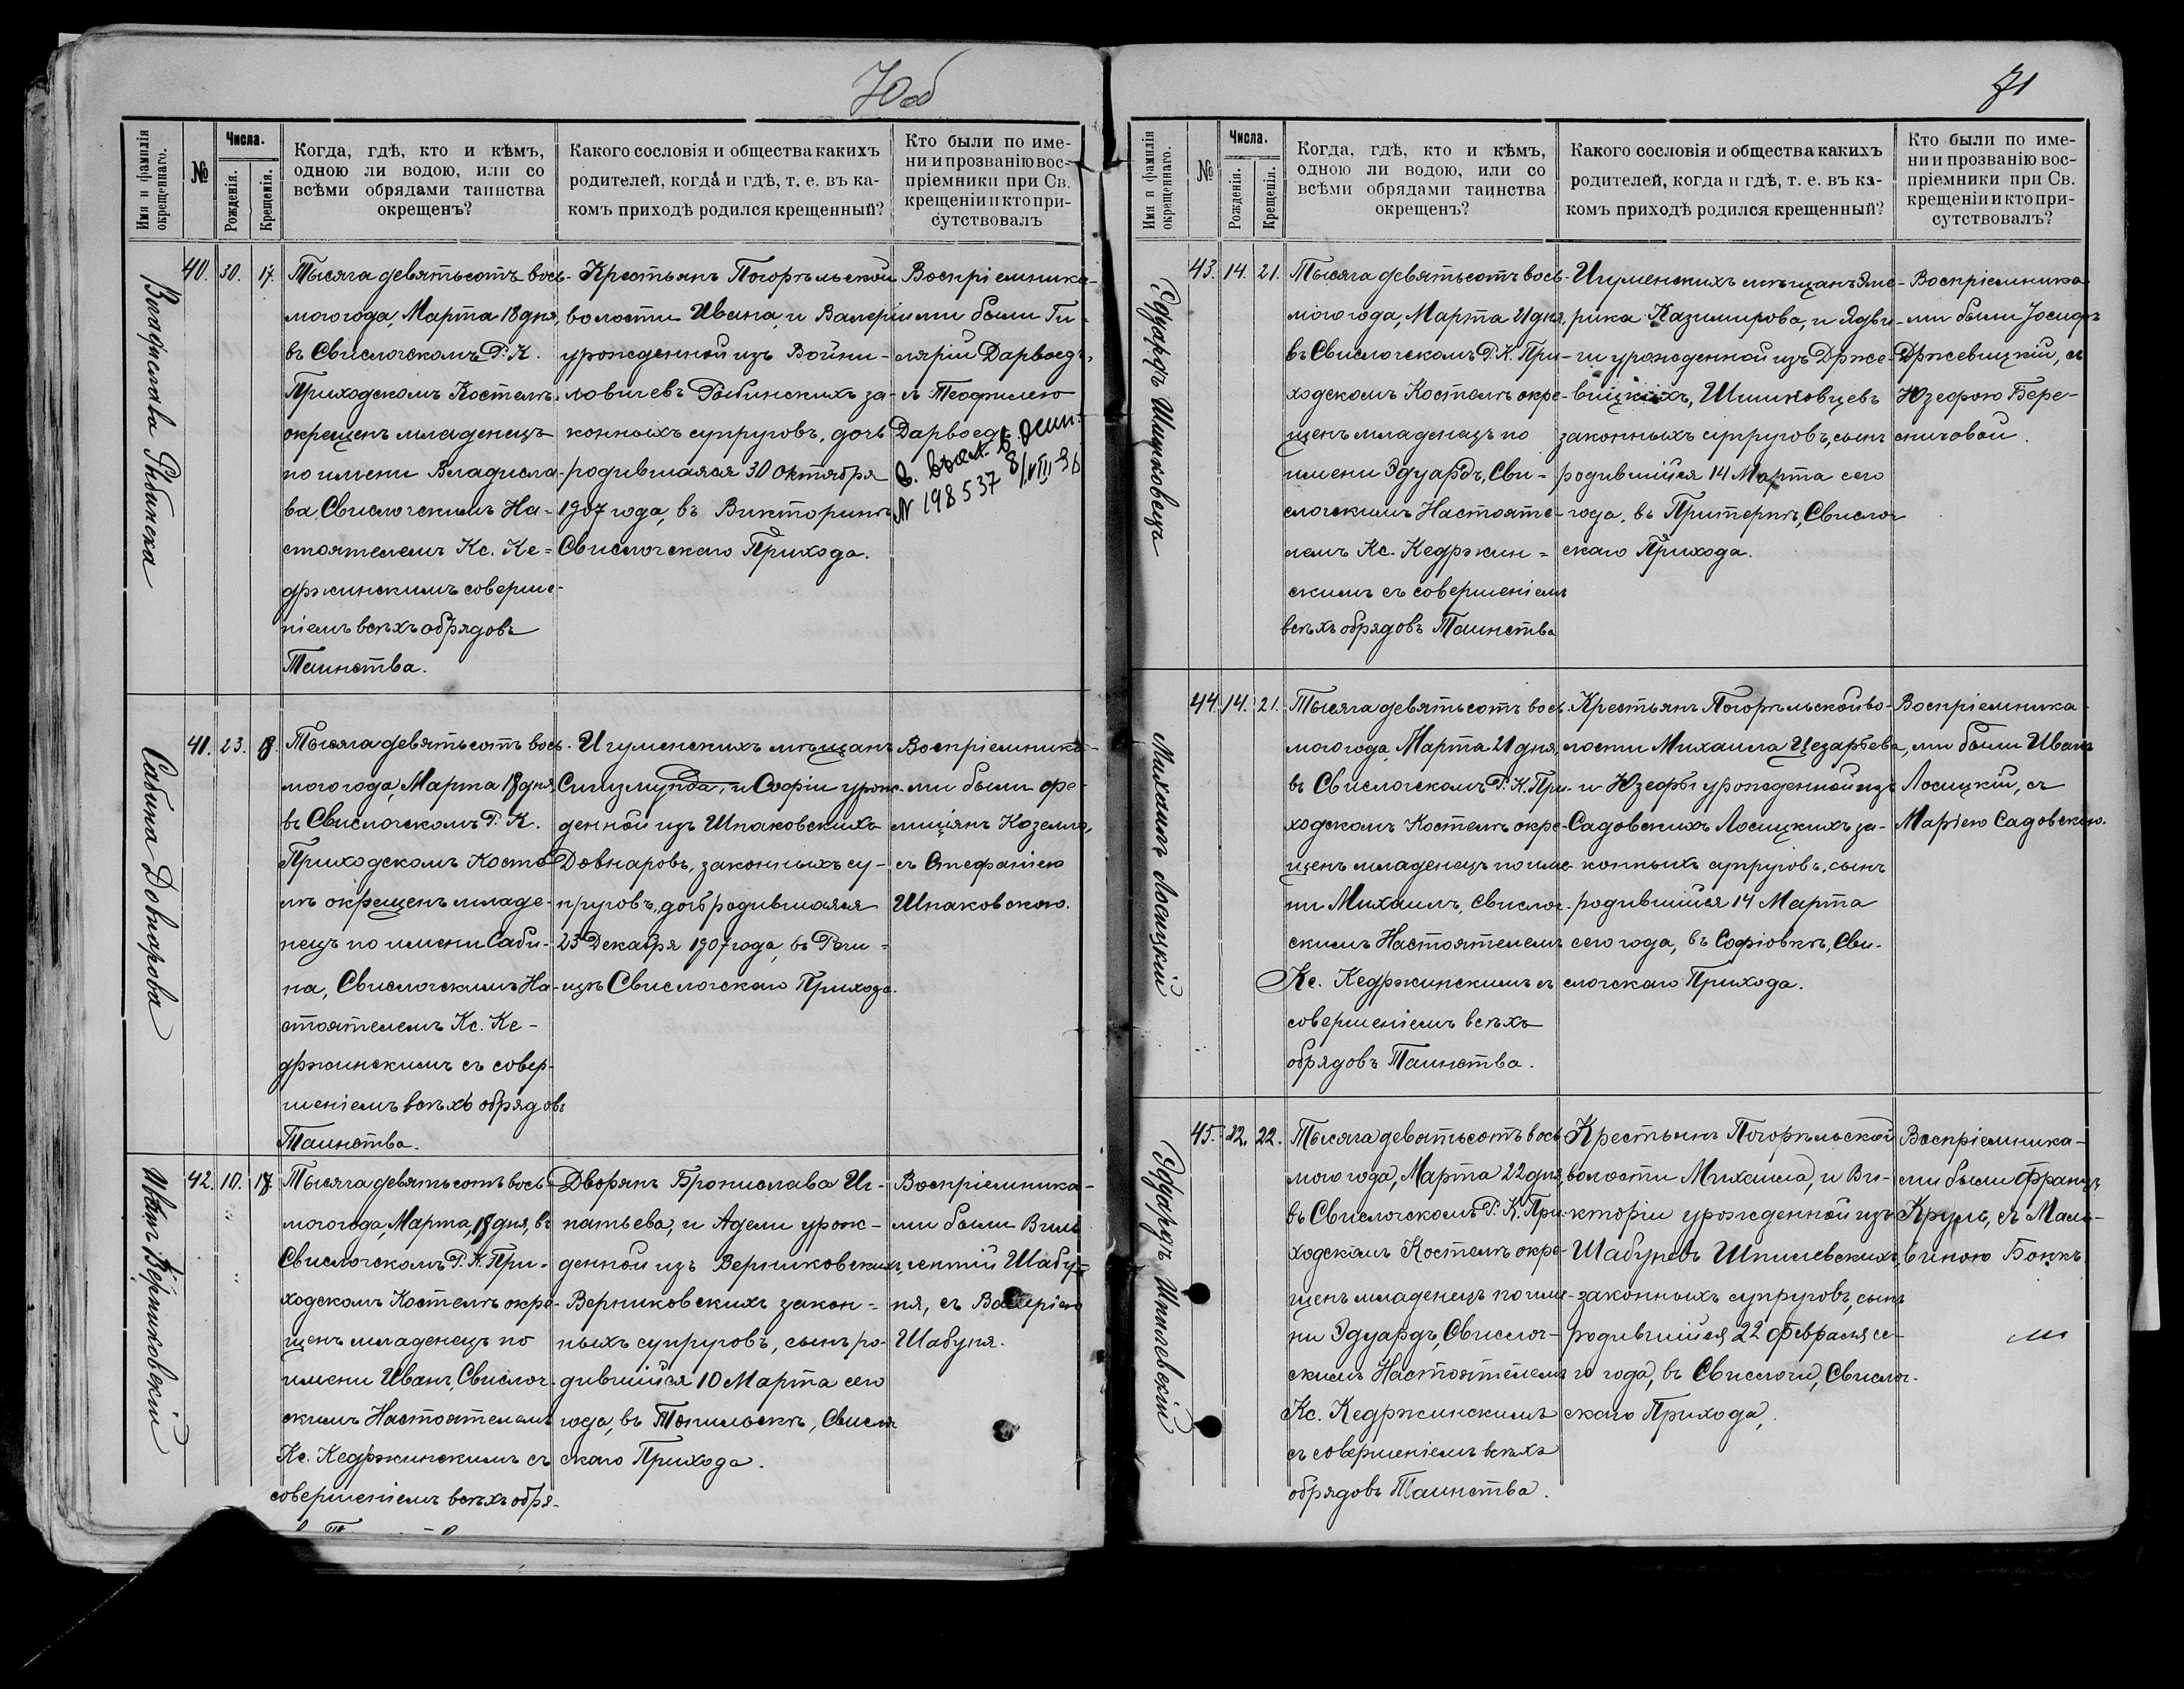 70об
Имя и фамилія окрещеннаго.
№
Числа.
Рожденія.
Крещенія.
Когда, гдѣ, кто и кѣмъ,
одною ли водою, или со
всѣми обрядами таинства
окрещенъ?
Какого сословія и общества какихъ
родителей, когда и гдѣ, т. е. въ ка-
комъ приходѣ родился крещенный?
Кто были по име-
ни и прозванію вос-
пріемники при Св.
крещеніи и кто при-
сутствовалъ
40. 30. 17.
Тысяча девятьсотъ вось-
мого года, Марта 18 дня,
въ Свислочскомъ Р. К.
Приходскомъ Костелѣ
окрещенъ младенецъ
по имени Владисла-
ва, Свислочскимъ На-
стоятелемъ Кс. Ке-
држинскимъ соверше-
ніемъ всѣхъ обрядовъ
Таинства.
Крестьянъ Погорѣльской
волости Ивана, и Валеріи
урожденной изъ Войни-
ловичевъ Рабинскихъ за-
конныхъ супруговъ, дочь
родившаяся 30 Октября
1907 года, въ Викторинѣ
Свислочскаго Прихода.
Воспріемника-
ми были Ги-
лярій Дарвоедъ,
съ Теофилею
Дарвоедъ.
№ 198537 8/VIII-36
41. 23. 18.
Сабина Довнарова
Тысяча девятьсотъ вось-
мого года, Марта 18 дня,
въ Свислочскомъ Р. К.
Приходскомъ Косте-
лѣ окрещенъ младе-
нецъ по имени Саби-
на, Свислочскимъ На-
стоятелемъ Кс. Ке-
држинскимъ съ совер-
шеніемъ всѣхъ обрядовъ
Таинства.
Игуменскихъ мѣщанъ
Сигизмунда, и Софіи урож-
денной изъ Шпаковскихъ
Довнаровъ, законныхъ су-
пруговъ, дочь родившаяся
23 Декабря 1907 года, въ Рѣчи-
цѣ Свислочскаго Прихода.
Воспріемника-
ми были Фе-
лиціянъ Козелло,
съ Стефаніею
Шпаковскою.
42. 10. 18.
Иванъ Верниковскій
Тысяча девятьсотъ вось-
мого года, Марта, 18 дня, въ
Свислочскомъ Р. К. При-
ходскомъ Костелѣ окре-
щенъ младенецъ по
имени Иванъ, Свислоч-
скимъ Настоятелемъ
Кс. Кедржинскимъ съ
совершеніемъ всѣхъ обря-
Дворянъ Бронислава Иг-
натьева, и Адели урож-
денной изъ Верниковскихъ,
Верниковскихъ закон-
ныхъ супруговъ, сынъ ро-
дившійся 10 Марта сего
года, въ Топилоскѣ, Свислоч-
скаго Прихода.
Воспріемника-
ми были Виль-
гентій Шабу-
ня, съ Валеріею
Шабуня.
71
Имя и фамилія окрещеннаго.
№
Числа.
Рожденія.
Крещенія.
Когда, гдѣ, кто и кѣмъ,
одною ли водою, или со
всѣми обрядами таинства
окрещенъ?
Какого сословія и общества какихъ
родителей, когда и гдѣ, т. е. въ ка-
комъ приходѣ родился крещенный?
Кто были по име-
ни и прозванію вос-
пріемники при Св.
крещеніи и кто при-
сутствовалъ?
43. 14. 21.
Эдуардъ Шишковецъ
Тысяча девятьсотъ вось-
мого года, Марта 21 дня,
въ Свислочскомъ Р. К. При-
ходскомъ Костелѣ окре-
щенъ младенецъ по
имени Эдуардъ, Сви-
слочскимъ Настояте-
лемъ Кс. Кедржин-
скимъ съ совершеніемъ
всѣхъ обрядовъ Таинства
Игуменскихъ мѣщанъ Эме-
рика Казимирова, и Ядви-
ги урожденной изъ Држе-
вицкихъ, Шишковцевъ
законныхъ супруговъ, сынъ
родившійся 14 Марта сего
года, въ Притеркѣ, Свислоч-
скаго Прихода.
Воспріемника-
ми были Іосифъ
Држевицкій, съ
Юзефою Бере-
сничовой.
44. 14. 21.
Михаилъ Лосицкій
Тысяча девятьсотъ вось-
мого года, Марта 21 дня,
въ Свислочскомъ Р. К. При-
ходскомъ Костелѣ окре-
щенъ младенецъ по име-
ни Михаилъ, Свислоч-
скимъ Настоятелемъ
Кс. Кедржинскимъ съ
совершеніемъ всѣхъ
обрядовъ Таинства.
Крестьянъ Погорѣльской во-
лости Михаила Цезарьева,
и Юзефы урожденной изъ
Садовскихъ Лосицкихъ за-
конныхъ супруговъ, сынъ
родившійся 14 Марта
сего года, въ Софіовкѣ, Сви-
слочскаго Прихода.
Воспріемника-
ми были Иванъ
Лосицкій, съ
Маріею Садовскою.
45. 22. 22.
Эдуардъ Шпилевскій
Тысяча девятьсотъ вось-
мого года, Марта 22 дня,
въ Свислочскомъ Р. К. При-
ходскомъ Костелѣ окре-
щенъ младенецъ по име-
ни Эдуардъ, Свислоч-
скимъ Настоятелемъ
Кс. Кедржинскимъ
съ совершеніемъ всѣхъ
обрядовъ Таинства.
Крестьянъ Погорѣльской
волости Михаила, и Ви-
кторіи урожденной изъ
Шабуневъ Шпилевскихъ,
законныхъ супруговъ, сынъ
родившійся 22 Февраля се-
го года, въ Свислочи, Свислоч-
скаго Прихода.
Воспріемника-
ми были Францъ
Круль, съ Маль-
виною Бонкъ.